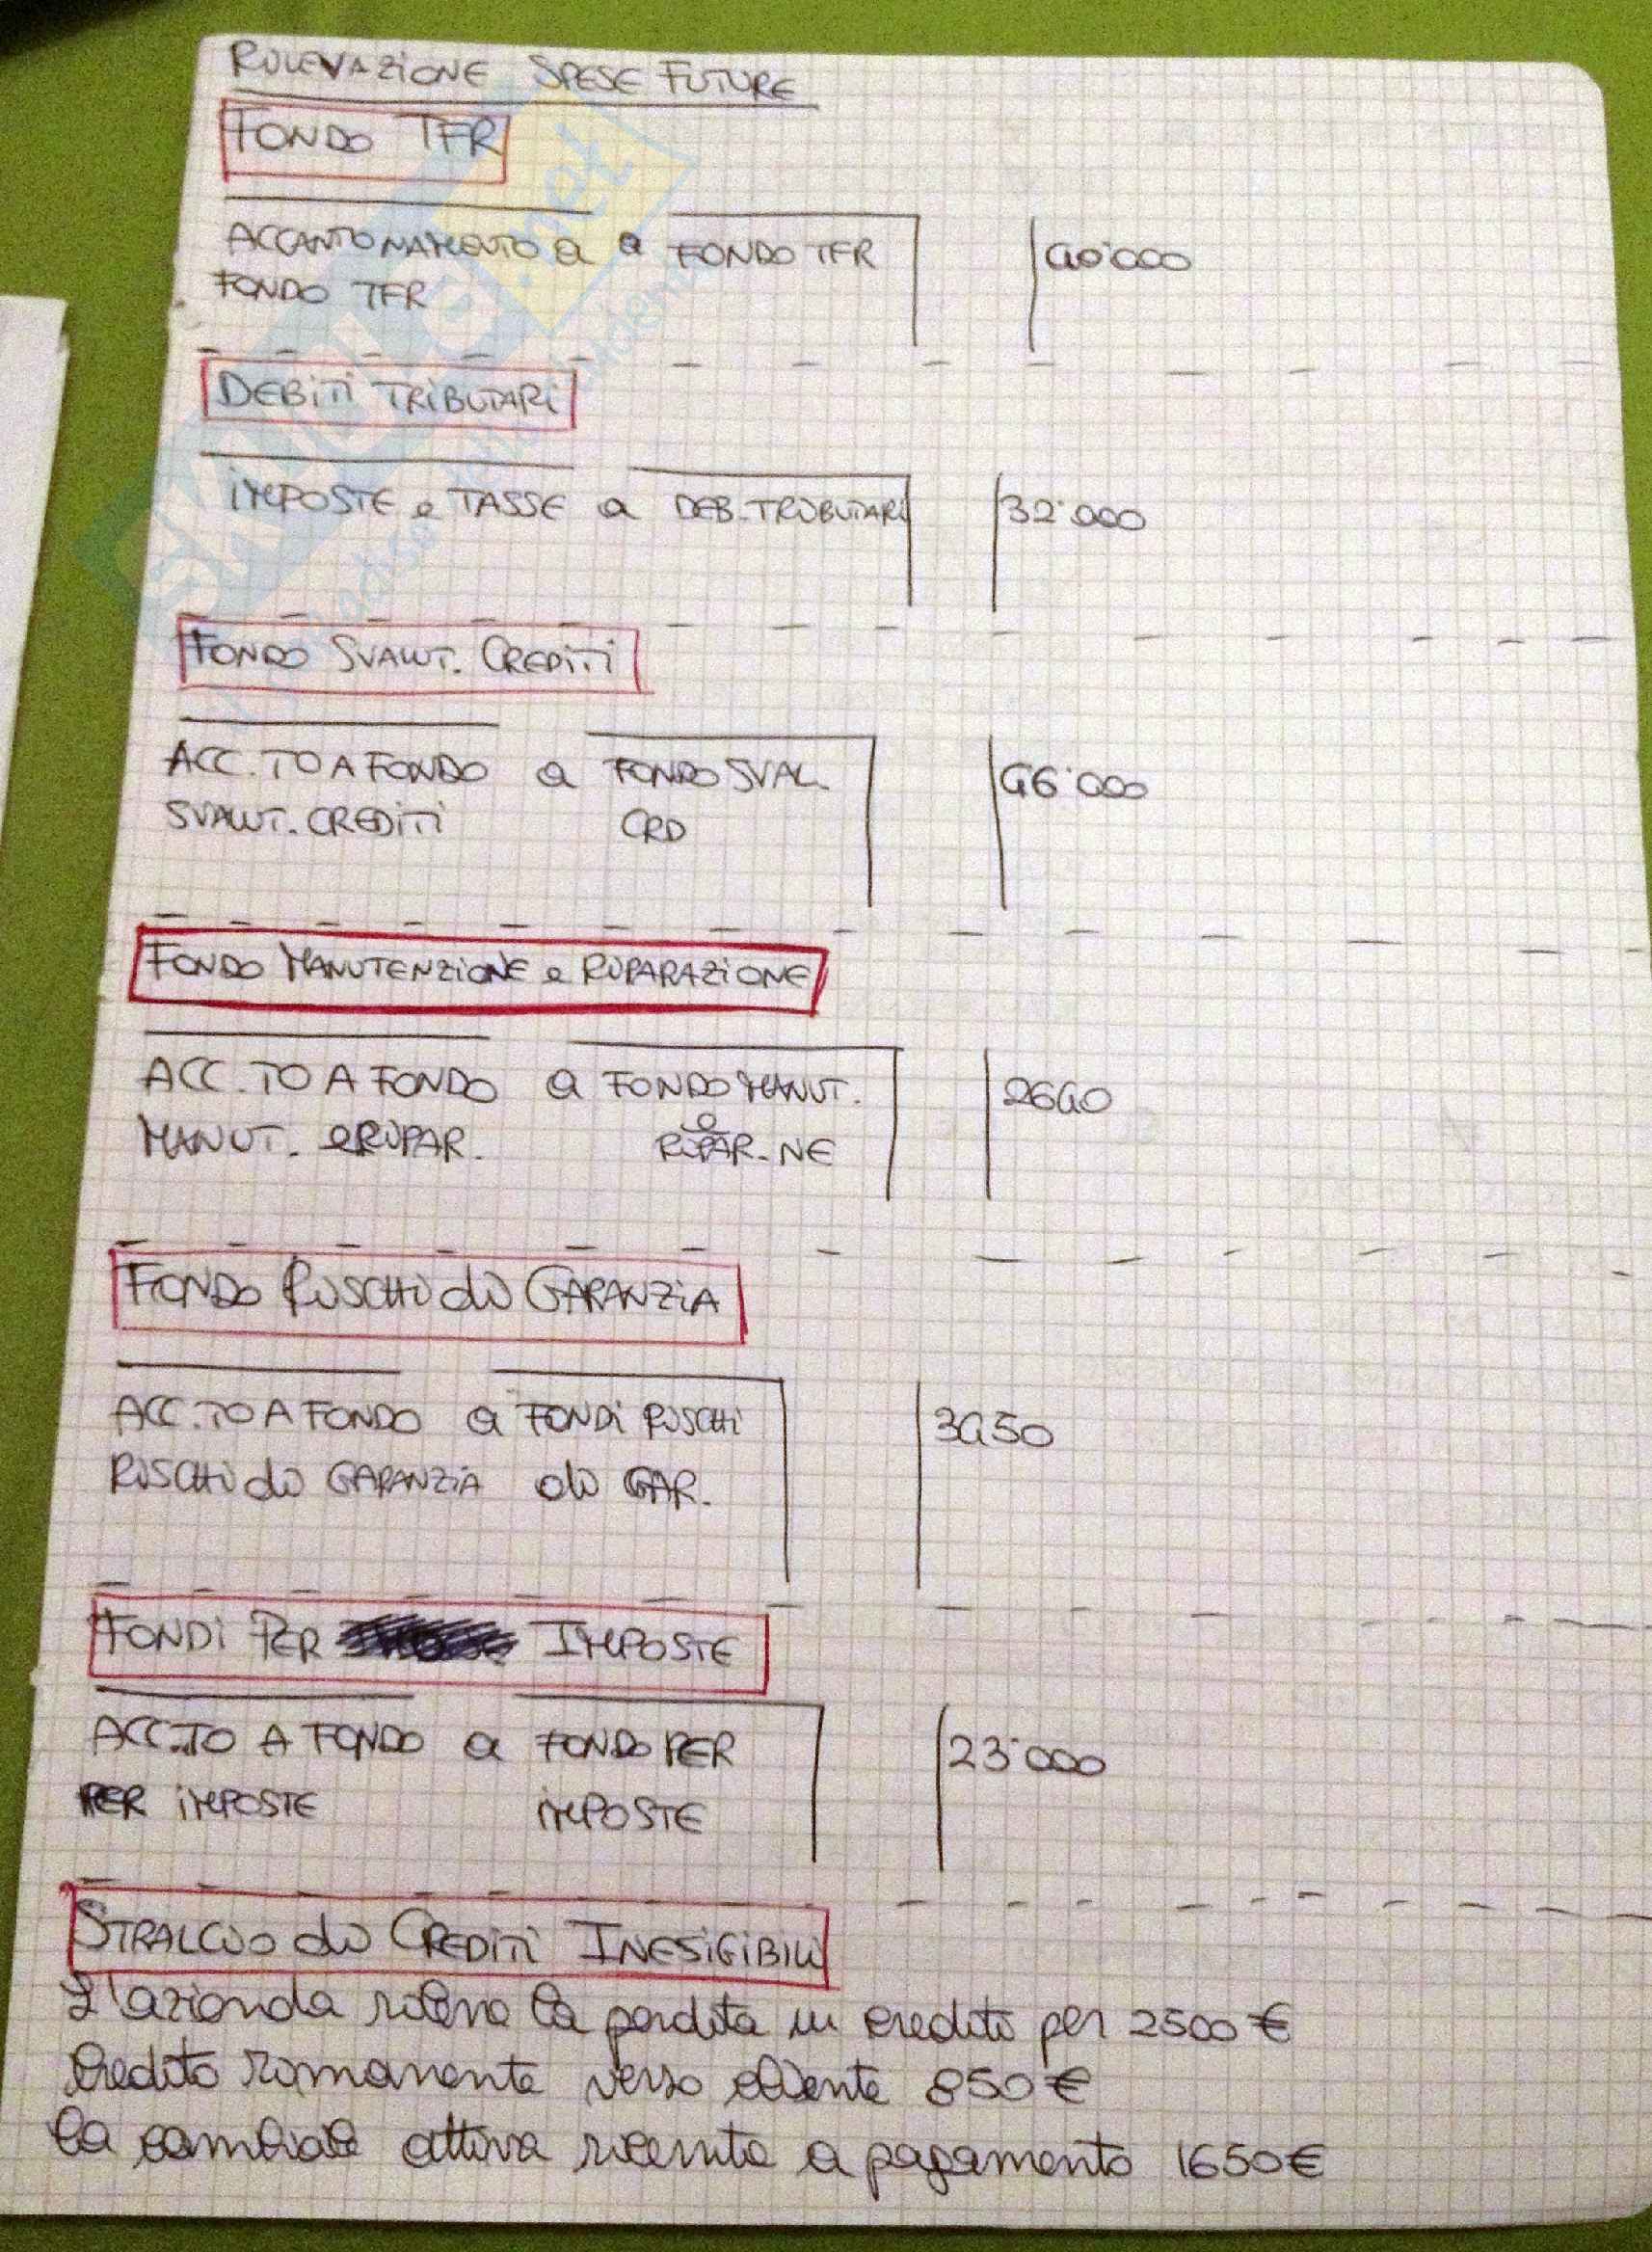 RILEVAZIONE SPESE FUTURE
FONDO TFR
ACCANTONAMENTO a a FONDO TFR 40'000
FONDO TFR
DEBITI TRIBUTARI
IMPOSTE e TASSE a DEB. TRIBUTARI 32'000
FONDO SVALUT. CREDITI
ACC.TO A FONDO a FONDO SVAL. 46'000
SVALUT. CREDITI CRD
FONDO MANUTENZIONE e RIPARAZIONE
ACC.TO A FONDO a FONDO MANUT. 2640
MANUT. e RIPAR. e RIPAR.NE
FONDO RISCHI di GARANZIA
ACC.TO A FONDO a FONDI RISCHI 3450
RISCHI di GARANZIA di GAR.
FONDI PER IMPOSTE
ACC.TO A FONDO a FONDO PER 23'000
PER IMPOSTE IMPOSTE
STRALCIO di CREDITI INESIGIBILI
L'azienda rileva la perdita su credito per 2500 €
Credito rimanente verso cliente 850 €
la cambiale attiva ricevuta a pagamento 1650 €